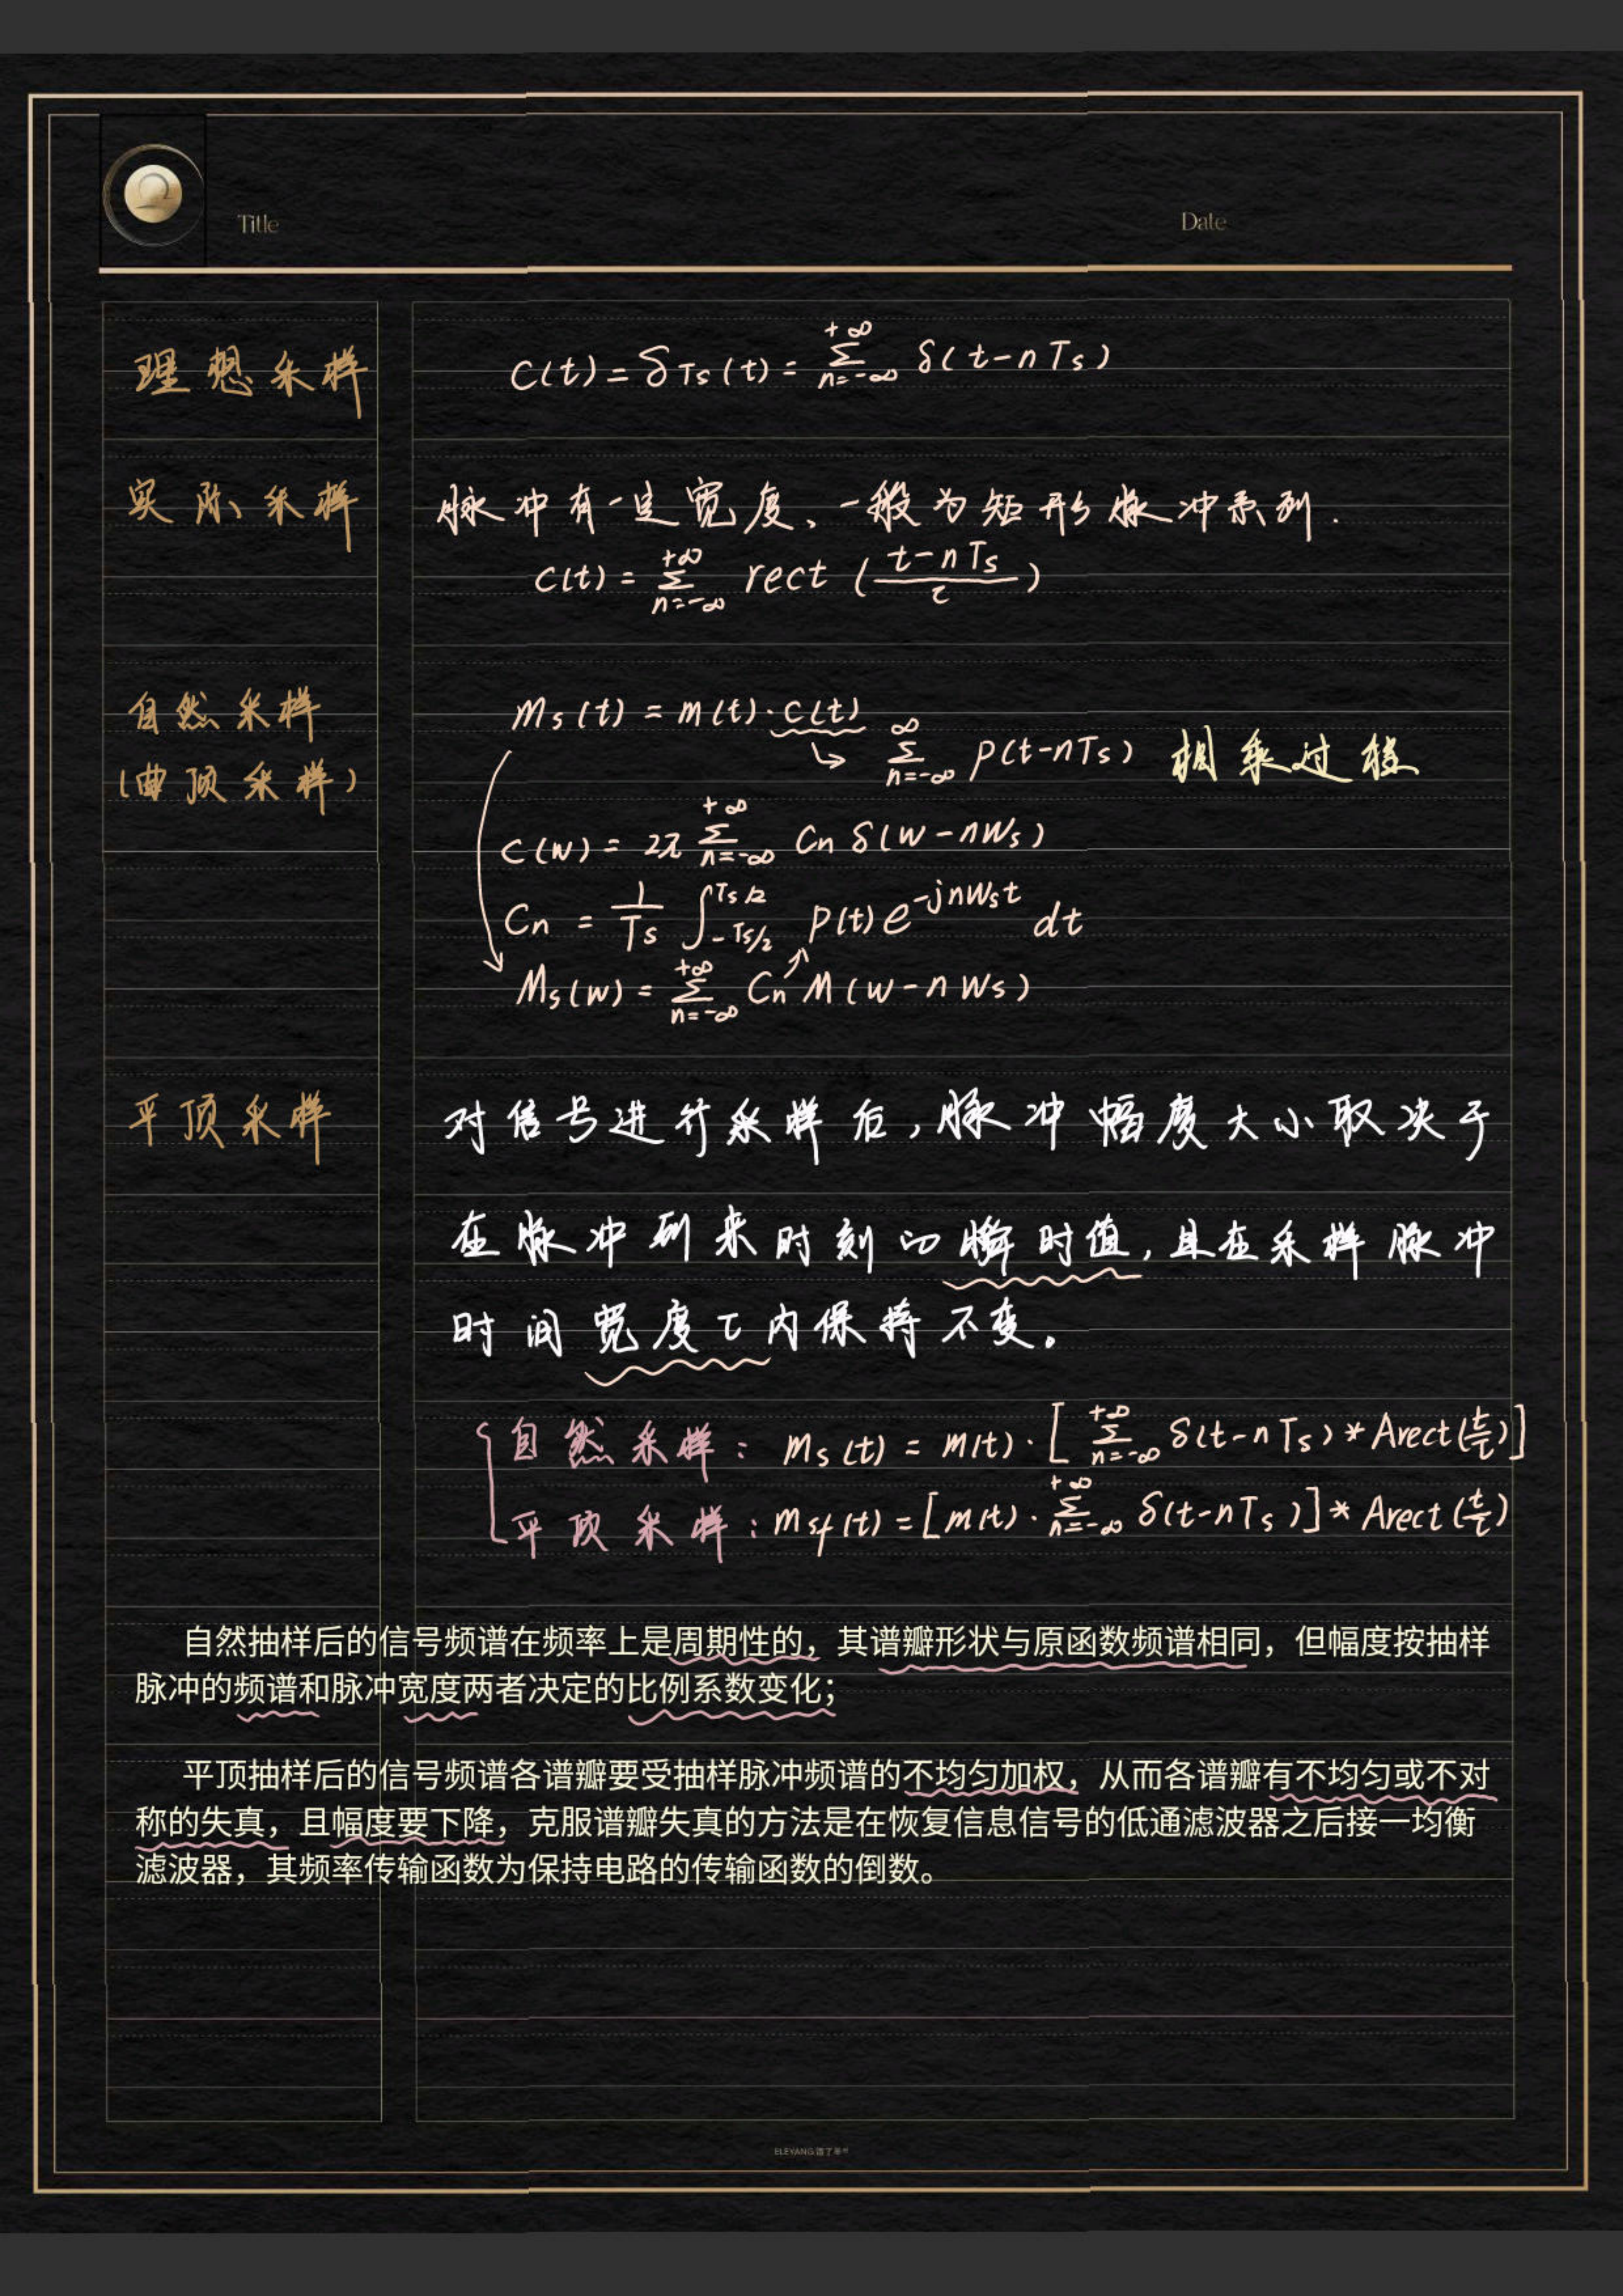 Title
Date
理想采样
C(t) = δTs(t) = Σ_{n=-∞}^{+∞} δ(t-nTs)
实际采样
脉冲有一定宽度、一般为矩形脉冲系列.
C(t) = Σ_{n=-∞}^{+∞} rect((t-nTs)/τ)
自然采样
(曲顶采样)
ms(t) = m(t)·c(t)
↳ Σ_{n=-∞}^{∞} p(t-nTs) 相乘过程
C(w) = 2π Σ_{n=-∞}^{+∞} Cn δ(w-nWs)
Cn = 1/Ts ∫_{-Ts/2}^{Ts/2} p(t)e^{-jnWst} dt
Ms(w) = Σ_{n=-∞}^{+∞} Cn M(w-nWs)
平顶采样
对信号进行采样后,脉冲幅度大小取决于
在脉冲到来时刻的瞬时值,且在采样脉冲
时间宽度τ内保持不变。
自然采样: ms(t) = m(t)·[Σ_{n=-∞}^{+∞} δ(t-nTs)*Arect(t/τ)]
平顶采样: msf(t) = [m(t)·Σ_{n=-∞}^{+∞} δ(t-nTs)]*Arect(t/τ)
自然抽样后的信号频谱在频率上是周期性的，其谱瓣形状与原函数频谱相同，但幅度按抽样
脉冲的频谱和脉冲宽度两者决定的比例系数变化；
平顶抽样后的信号频谱各谱瓣要受抽样脉冲频谱的不均匀加权，从而各谱瓣有不均匀或不对
称的失真，且幅度要下降，克服谱瓣失真的方法是在恢复信息信号的低通滤波器之后接一均衡
滤波器，其频率传输函数为保持电路的传输函数的倒数。